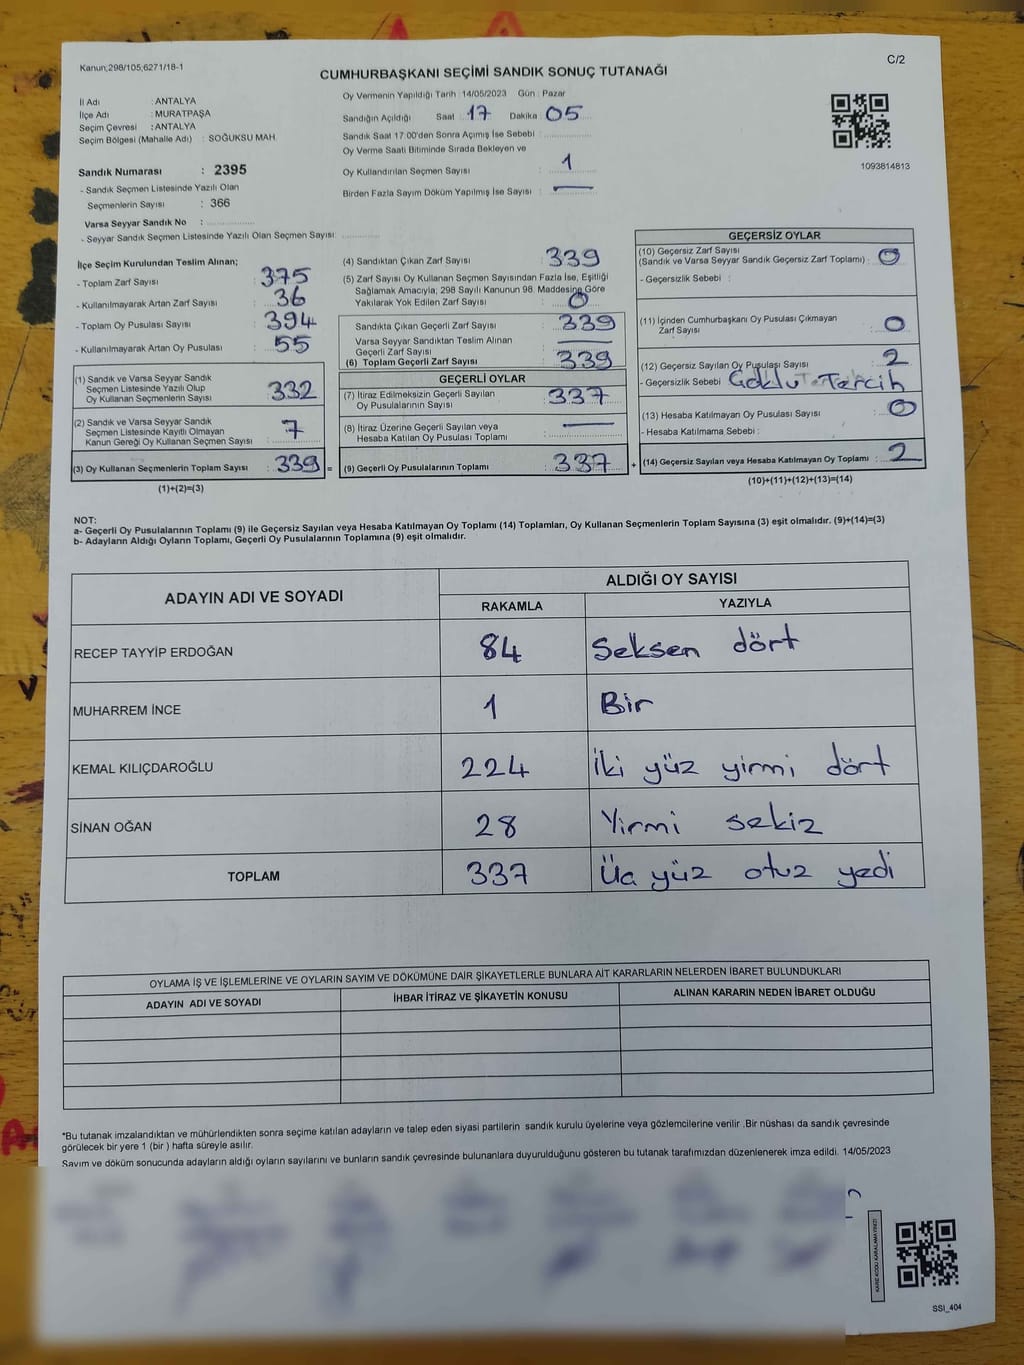 Kanun;298/105;6271/18-1
C/2
CUMHURBAŞKANI SEÇİMİ SANDIK SONUÇ TUTANAĞI
İl Adı : ANTALYA
İlçe Adı : MURATPAŞA
Seçim Çevresi : ANTALYA
Seçim Bölgesi (Mahalle Adı) : SOĞUKSU MAH.
Sandık Numarası : 2395
- Sandık Seçmen Listesinde Yazılı Olan
Seçmenlerin Sayısı : 366
Varsa Seyyar Sandık No :
- Seyyar Sandık Seçmen Listesinde Yazılı Olan Seçmen Sayısı:
Oy Vermenin Yapıldığı Tarih : 14/05/2023 Gün : Pazar
Sandığın Açıldığı Saat : 17 Dakika : 05
Sandık Saat 17:00'den Sonra Açımış İse Sebebi :
Oy Verme Saati Bitiminde Sırada Bekleyen ve
Oy Kullandırılan Seçmen Sayısı : 1
Birden Fazla Sayım Döküm Yapılmış İse Sayısı : —
1093814813
İlçe Seçim Kurulundan Teslim Alınan;
- Toplam Zarf Sayısı : 375
- Kullanılmayarak Artan Zarf Sayısı : 36
- Toplam Oy Pusulası Sayısı : 394
- Kullanılmayarak Artan Oy Pusulası : 55
(1) Sandık ve Varsa Seyyar Sandık
Seçmen Listesinde Yazılı Olup
Oy Kullanan Seçmenlerin Sayısı : 332
(2) Sandık ve Varsa Seyyar Sandık
Seçmen Listesinde Kayıtlı Olmayan
Kanun Gereği Oy Kullanan Seçmen Sayısı : 7
(3) Oy Kullanan Seçmenlerin Toplam Sayısı : 339 =
(1)+(2)=(3)
(4) Sandıktan Çıkan Zarf Sayısı : 339
(5) Zarf Sayısı Oy Kullanan Seçmen Sayısından Fazla İse, Eşitliği
Sağlamak Amacıyla; 298 Sayılı Kanunun 98. Maddesine Göre
Yakılarak Yok Edilen Zarf Sayısı : 0
Sandıkta Çıkan Geçerli Zarf Sayısı : 339
Varsa Seyyar Sandıktan Teslim Alınan
Geçerli Zarf Sayısı : —
(6) Toplam Geçerli Zarf Sayısı : 339
GEÇERLİ OYLAR
(7) İtiraz Edilmeksizin Geçerli Sayılan
Oy Pusulalarının Sayısı : 337
(8) İtiraz Üzerine Geçerli Sayılan veya
Hesaba Katılan Oy Pusulası Toplamı : —
(9) Geçerli Oy Pusulalarının Toplamı : 337 +
GEÇERSİZ OYLAR
(10) Geçersiz Zarf Sayısı
(Sandık ve Varsa Seyyar Sandık Geçersiz Zarf Toplamı) : 0
- Geçersizlik Sebebi :
(11) İçinden Cumhurbaşkanı Oy Pusulası Çıkmayan
Zarf Sayısı : 0
(12) Geçersiz Sayılan Oy Pusulası Sayısı : 2
- Geçersizlik Sebebi : Çoklu Tercih
(13) Hesaba Katılmayan Oy Pusulası Sayısı : 0
- Hesaba Katılmama Sebebi :
(14) Geçersiz Sayılan veya Hesaba Katılmayan Oy Toplamı : 2
(10)+(11)+(12)+(13)=(14)
NOT:
a- Geçerli Oy Pusulalarının Toplamı (9) ile Geçersiz Sayılan veya Hesaba Katılmayan Oy Toplamı (14) Toplamları, Oy Kullanan Seçmenlerin Toplam Sayısına (3) eşit olmalıdır. (9)+(14)=(3)
b- Adayların Aldığı Oyların Toplamı, Geçerli Oy Pusulalarının Toplamına (9) eşit olmalıdır.
ADAYIN ADI VE SOYADI ALDIĞI OY SAYISI
RAKAMLA YAZIYLA
RECEP TAYYİP ERDOĞAN 84 Seksen dört
MUHARREM İNCE 1 Bir
KEMAL KILIÇDAROĞLU 224 İki yüz yirmi dört
SİNAN OĞAN 28 Yirmi sekiz
TOPLAM 337 Üç yüz otuz yedi
OYLAMA İŞ VE İŞLEMLERİNE VE OYLARIN SAYIM VE DÖKÜMÜNE DAİR ŞİKAYETLERLE BUNLARA AİT KARARLARIN NELERDEN İBARET BULUNDUKLARI
ADAYIN ADI VE SOYADI İHBAR İTİRAZ VE ŞİKAYETİN KONUSU ALINAN KARARIN NEDEN İBARET OLDUĞU
*Bu tutanak imzalandıktan ve mühürlendikten sonra seçime katılan adayların ve talep eden siyasi partilerin sandık kurulu üyelerine veya gözlemcilerine verilir .Bir nüshası da sandık çevresinde
görülecek bir yere 1 (bir ) hafta süreyle asılır.
Sayım ve döküm sonucunda adayların aldığı oyların sayılarını ve bunların sandık çevresinde bulunanlara duyurulduğunu gösteren bu tutanak tarafımızdan düzenlenerek imza edildi. 14/05/2023
KAREKODU KARALAMAYINIZ!
SSI_404